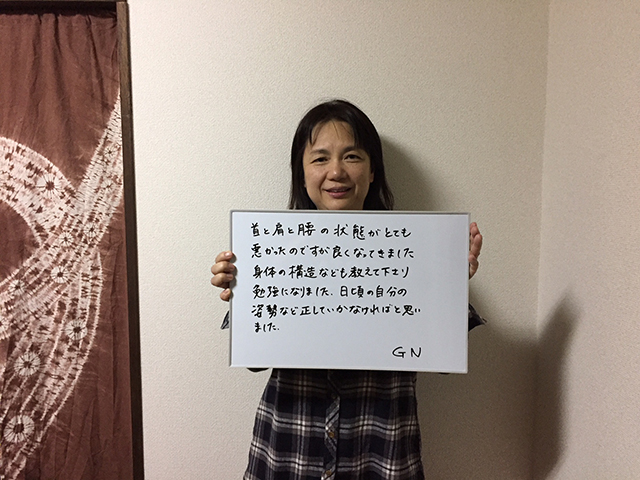 首と肩と腰の状態がとても
悪かったのですが良くなってきました
身体の構造なども教えて下さり
勉強になりました、日頃の自分の
姿勢など正していかなければと思い
ました.
GN